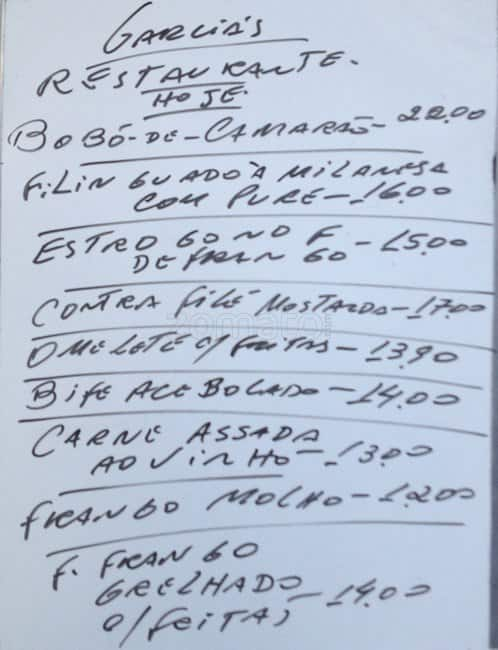 GARCIA'S
RESTAURANTE.
HOJE.
BOBÓ-DE-CAMARÃO- 22.00
FILIN GUADO À MILANESA
COM PURÊ-16.00
ESTROGONOF
DE FRANGO -15.00
CONTRA FILÉ MOSTARDA-17.00
zomato
OMELETE C/ FRITAS-13,90
BIFE ACEBOLADO-14.00
CARNE ASSADA
AO VINHO-13.00
FRANGO MOLHO-12.00
F. FRANGO
GRELHADO
C/ FEITAS -14.00